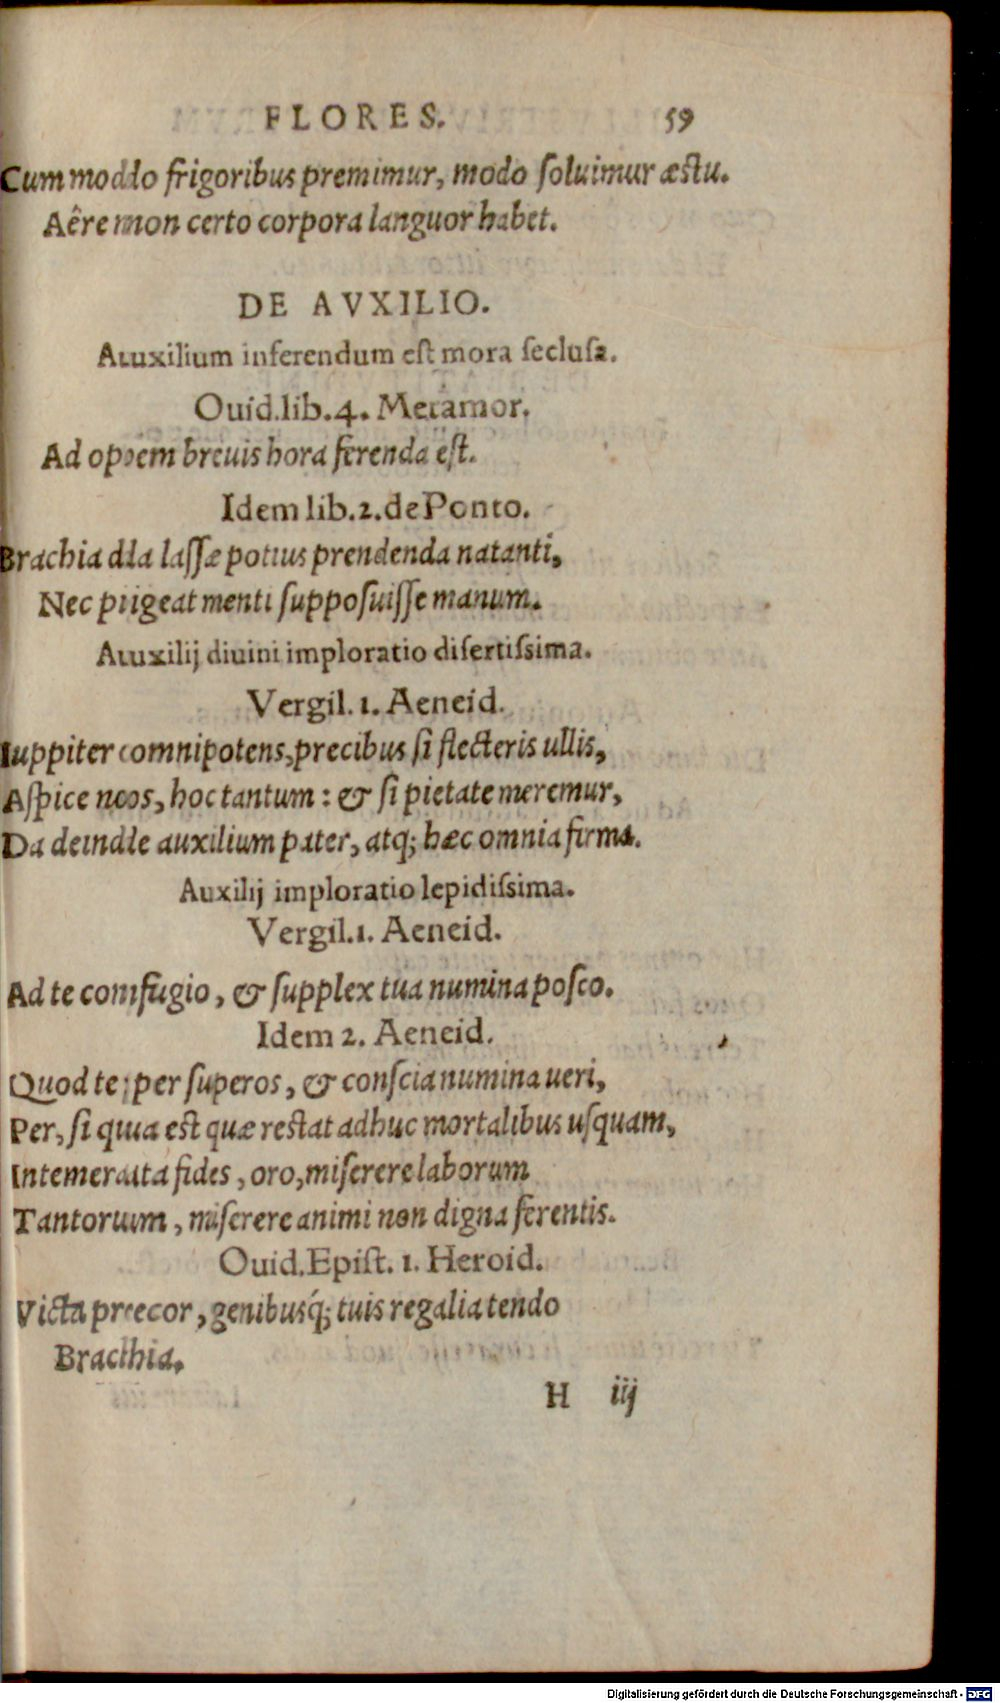 FLORES. 59
Cum modo frigoribus premimur, modo soluimur æstu.
Aêre non certo corpora languor habet.
DE AVXILIO.
Auxilium inferendum est mora seclusa.
Ouid. lib. 4. Metamor.
Ad opem breuis hora ferenda est.
Idem lib. 2. de Ponto.
Brachia da lassæ potius prendenda natanti,
Nec pigeat menti supposuisse manum.
Auxilij diuini imploratio disertissima.
Vergil. 1. Aeneid.
Iuppiter omnipotens, precibus si flecteris ullis,
Aspice nos, hoc tantum: & si pietate meremur,
Da deinde auxilium pater, atq; hæc omnia firma.
Auxilij imploratio lepidissima.
Vergil. 1. Aeneid.
Ad te confugio, & supplex tua numina posco.
Idem 2. Aeneid.
Quod te per superos, & conscia numina ueri,
Per, si qua est quæ restat adhuc mortalibus usquam,
Intemerata fides, oro, miserere laborum
Tantorum, miserere animi non digna ferentis.
Ouid. Epist. 1. Heroid.
Victa precor, genibusq́; tuis regalia tendo
Brachia.
H iij
Digitalisierung gefördert durch die Deutsche Forschungsgemeinschaft - DFG